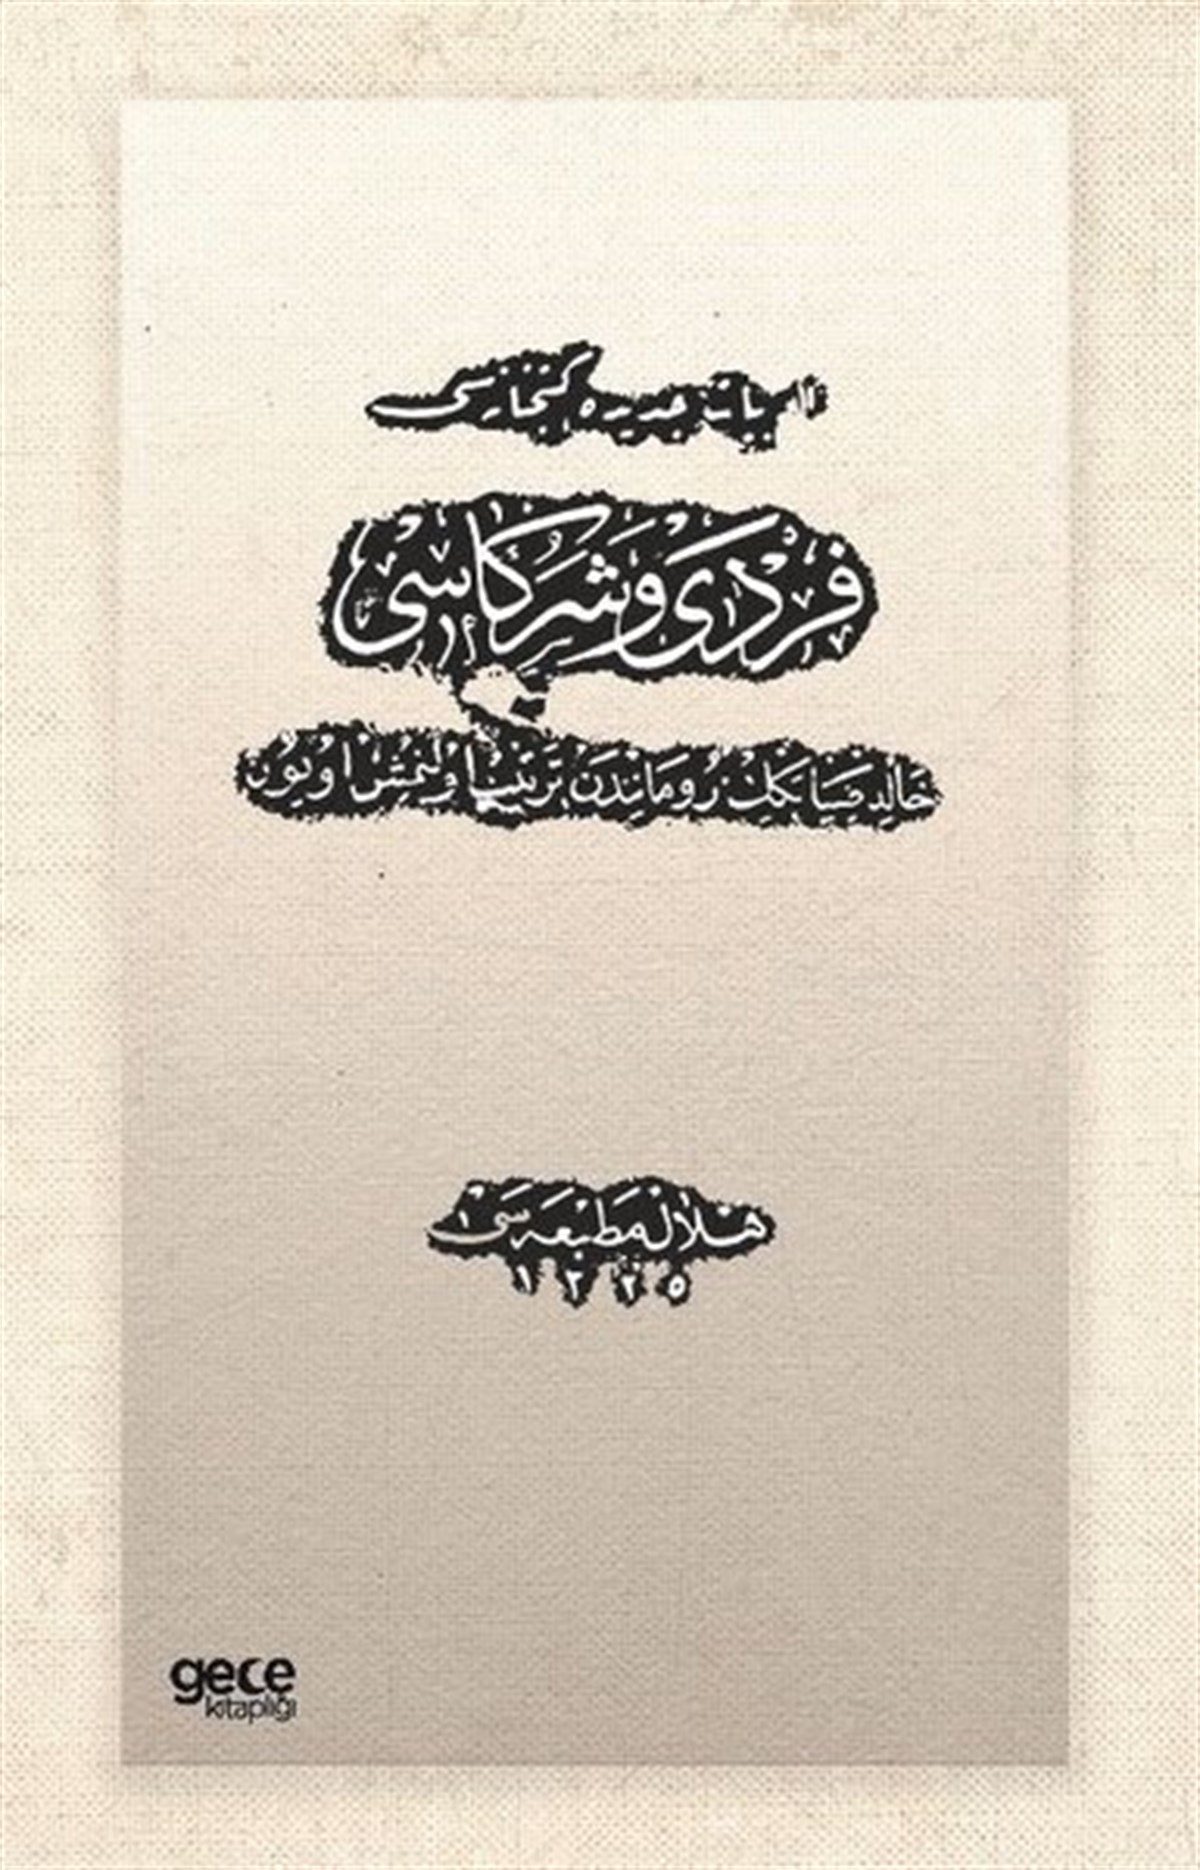 ادبیات جدیده کتبخانه‌سی
فردی وشرکاسی
خالد ضیا بکك روماندن ترتیب اولنمش اویون
هلال مطبعه‌سی
١٣٢٥
gece
kitaplığı